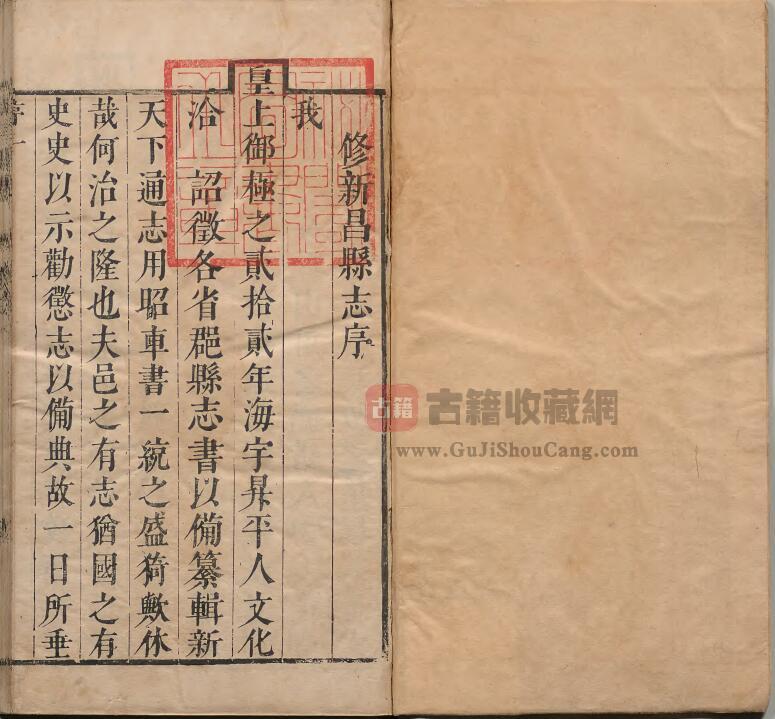 修新昌縣志序
我
皇上御極之貳拾貳年海宇昇平人文化
洽 詔徵各省郡縣志書以備纂輯新
天下通志用昭車書一統之盛猗歟休
哉何治之隆也夫邑之有志猶國之有
史史以示勸懲志以備典故一日所垂
序 一
古籍 古籍收藏網
www.GuJiShouCang.com